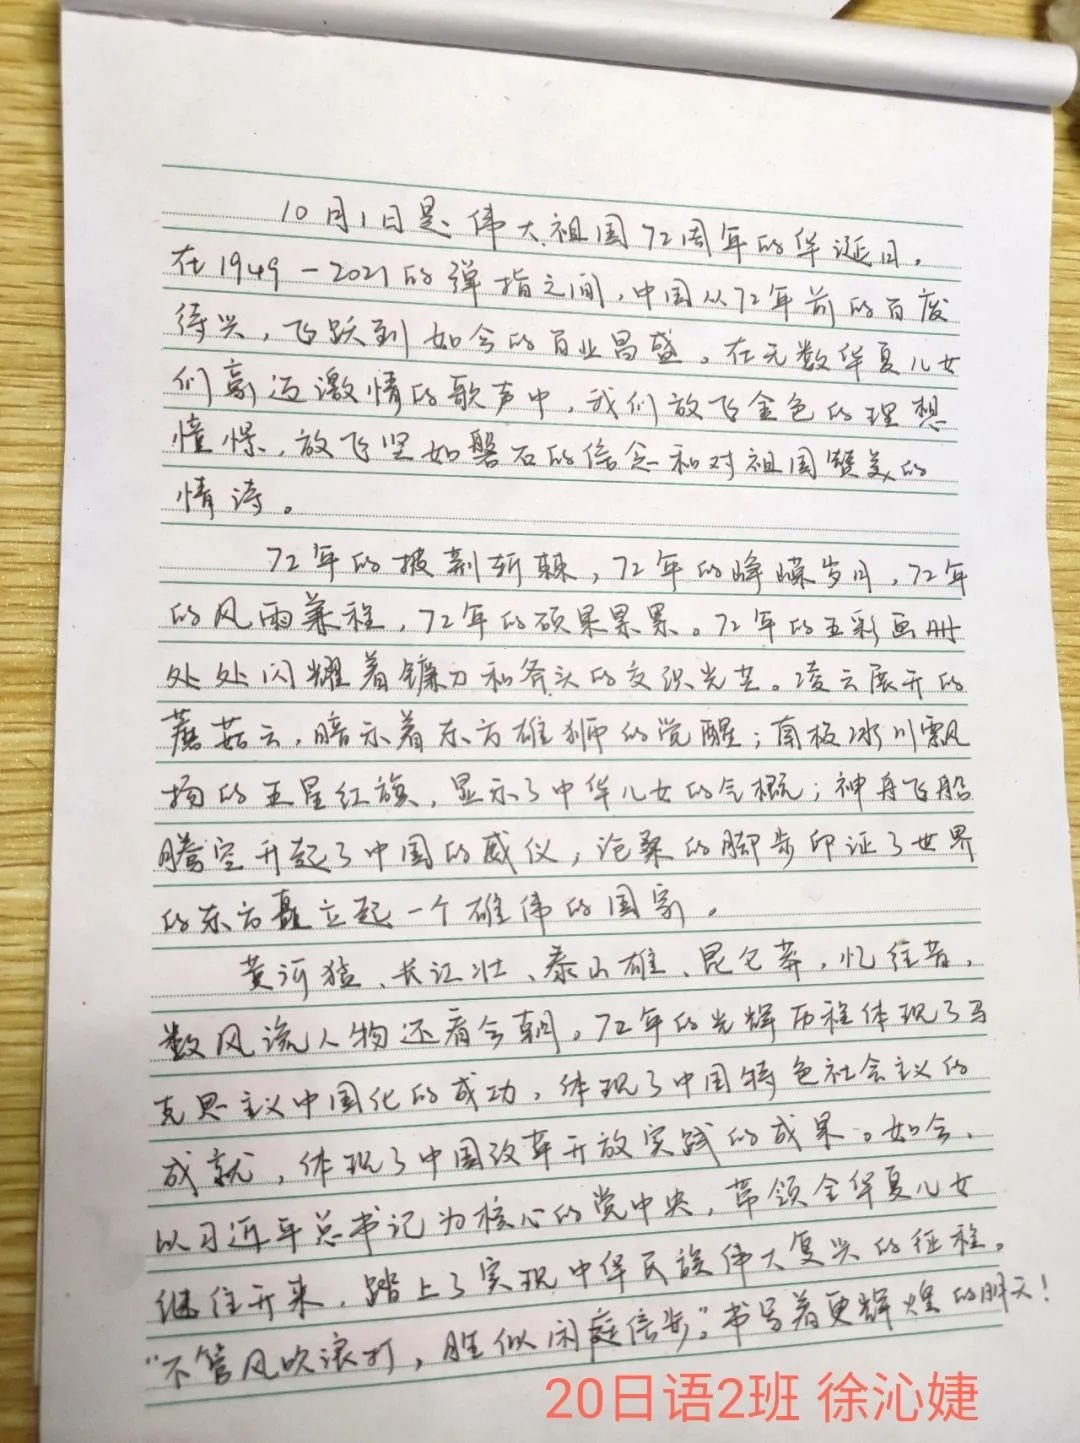 10月1日是伟大祖国72周年的华诞日。
在1949-2021的弹指之间,中国从72年前的百废
待兴,飞跃到如今的百业昌盛。在无数华夏儿女
们豪迈激情的歌声中,我们放飞金色的理想
憧憬,放飞坚如磐石的信念和对祖国赞美的
情诗。
72年的披荆斩棘,72年的峥嵘岁月,72年
的风雨兼程,72年的硕果累累。72年的五彩画册
处处闪耀着镰刀和斧头的交织光芒。凌云展开的
蘑菇云,暗示着东方雄狮的觉醒;南极冰川飘
扬的五星红旗,显示了中华儿女的气概;神舟飞船
腾空升起了中国的威仪,沧桑的脚步印证了世界
的东方矗立起一个雄伟的国家。
黄河猛、长江壮、泰山雄、昆仑莽,忆往昔,
数风流人物还看今朝。72年的光辉历程体现了马
克思主义中国化的成功,体现了中国特色社会主义的
成就,体现了中国改革开放实践的成果。如今,
以习近平总书记为核心的党中央,带领全华夏儿女
继往开来,踏上了实现中华民族伟大复兴的征程。
“不管风吹浪打,胜似闲庭信步。”书写着更辉煌的明天!
20日语2班 徐沁婕